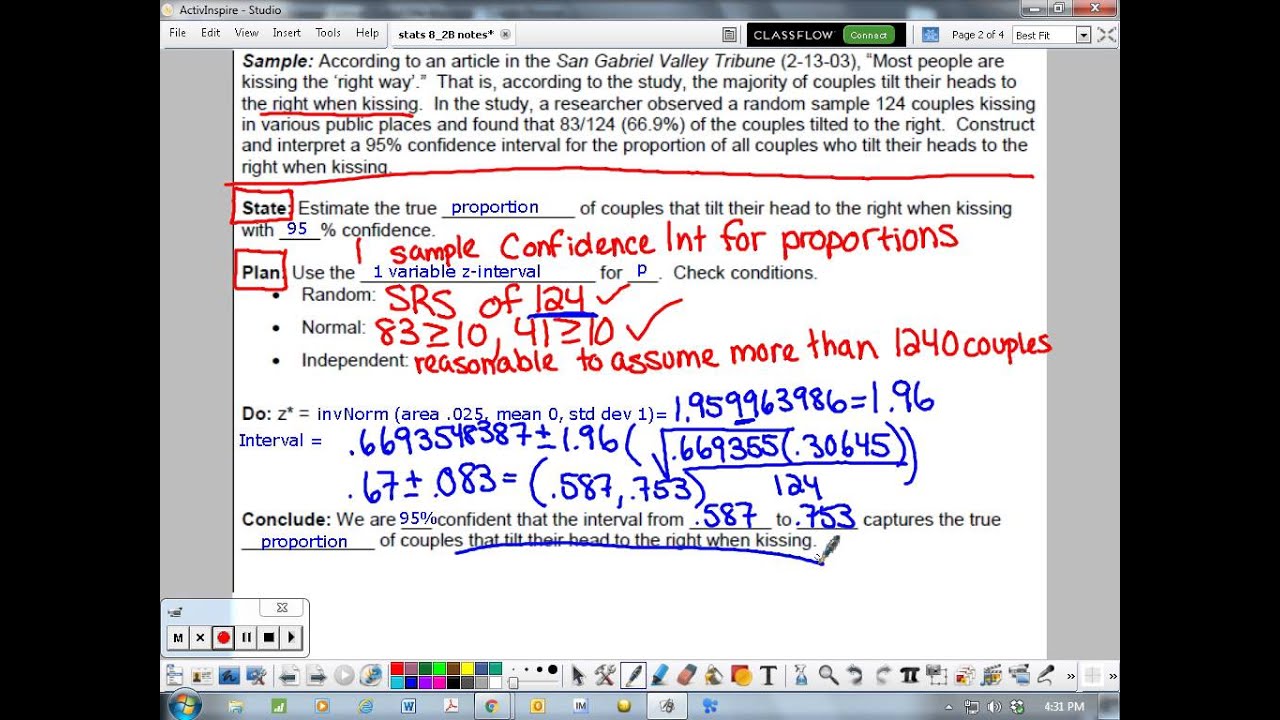 ActivInspire - Studio
File Edit View Insert Tools Help stats 8_2B notes* CLASSFLOW Connect Page 2 of 4 Best Fit
Sample: According to an article in the San Gabriel Valley Tribune (2-13-03), “Most people are
kissing the ‘right way’.” That is, according to the study, the majority of couples tilt their heads to
the right when kissing. In the study, a researcher observed a random sample 124 couples kissing
in various public places and found that 83/124 (66.9%) of the couples tilted to the right. Construct
and interpret a 95% confidence interval for the proportion of all couples who tilt their heads to the
right when kissing.
State: Estimate the true proportion of couples that tilt their head to the right when kissing
with 95 % confidence.
1 sample Confidence Int for proportions
Plan: Use the 1 variable z-interval for p. Check conditions.
• Random: SRS of 124 ✓
• Normal: 83≥10, 41≥10 ✓
• Independent: reasonable to assume more than 1240 couples
Do: z* = invNorm (area .025, mean 0, std dev 1)= 1.959963986=1.96
Interval = .6693548387 ± 1.96 (√.669355(.30645))
.67 ± .083 = (.587, .753) 124
Conclude: We are 95% confident that the interval from .587 to .753 captures the true
proportion of couples that tilt their head to the right when kissing.
M
T π » »
W IM 4:31 PM